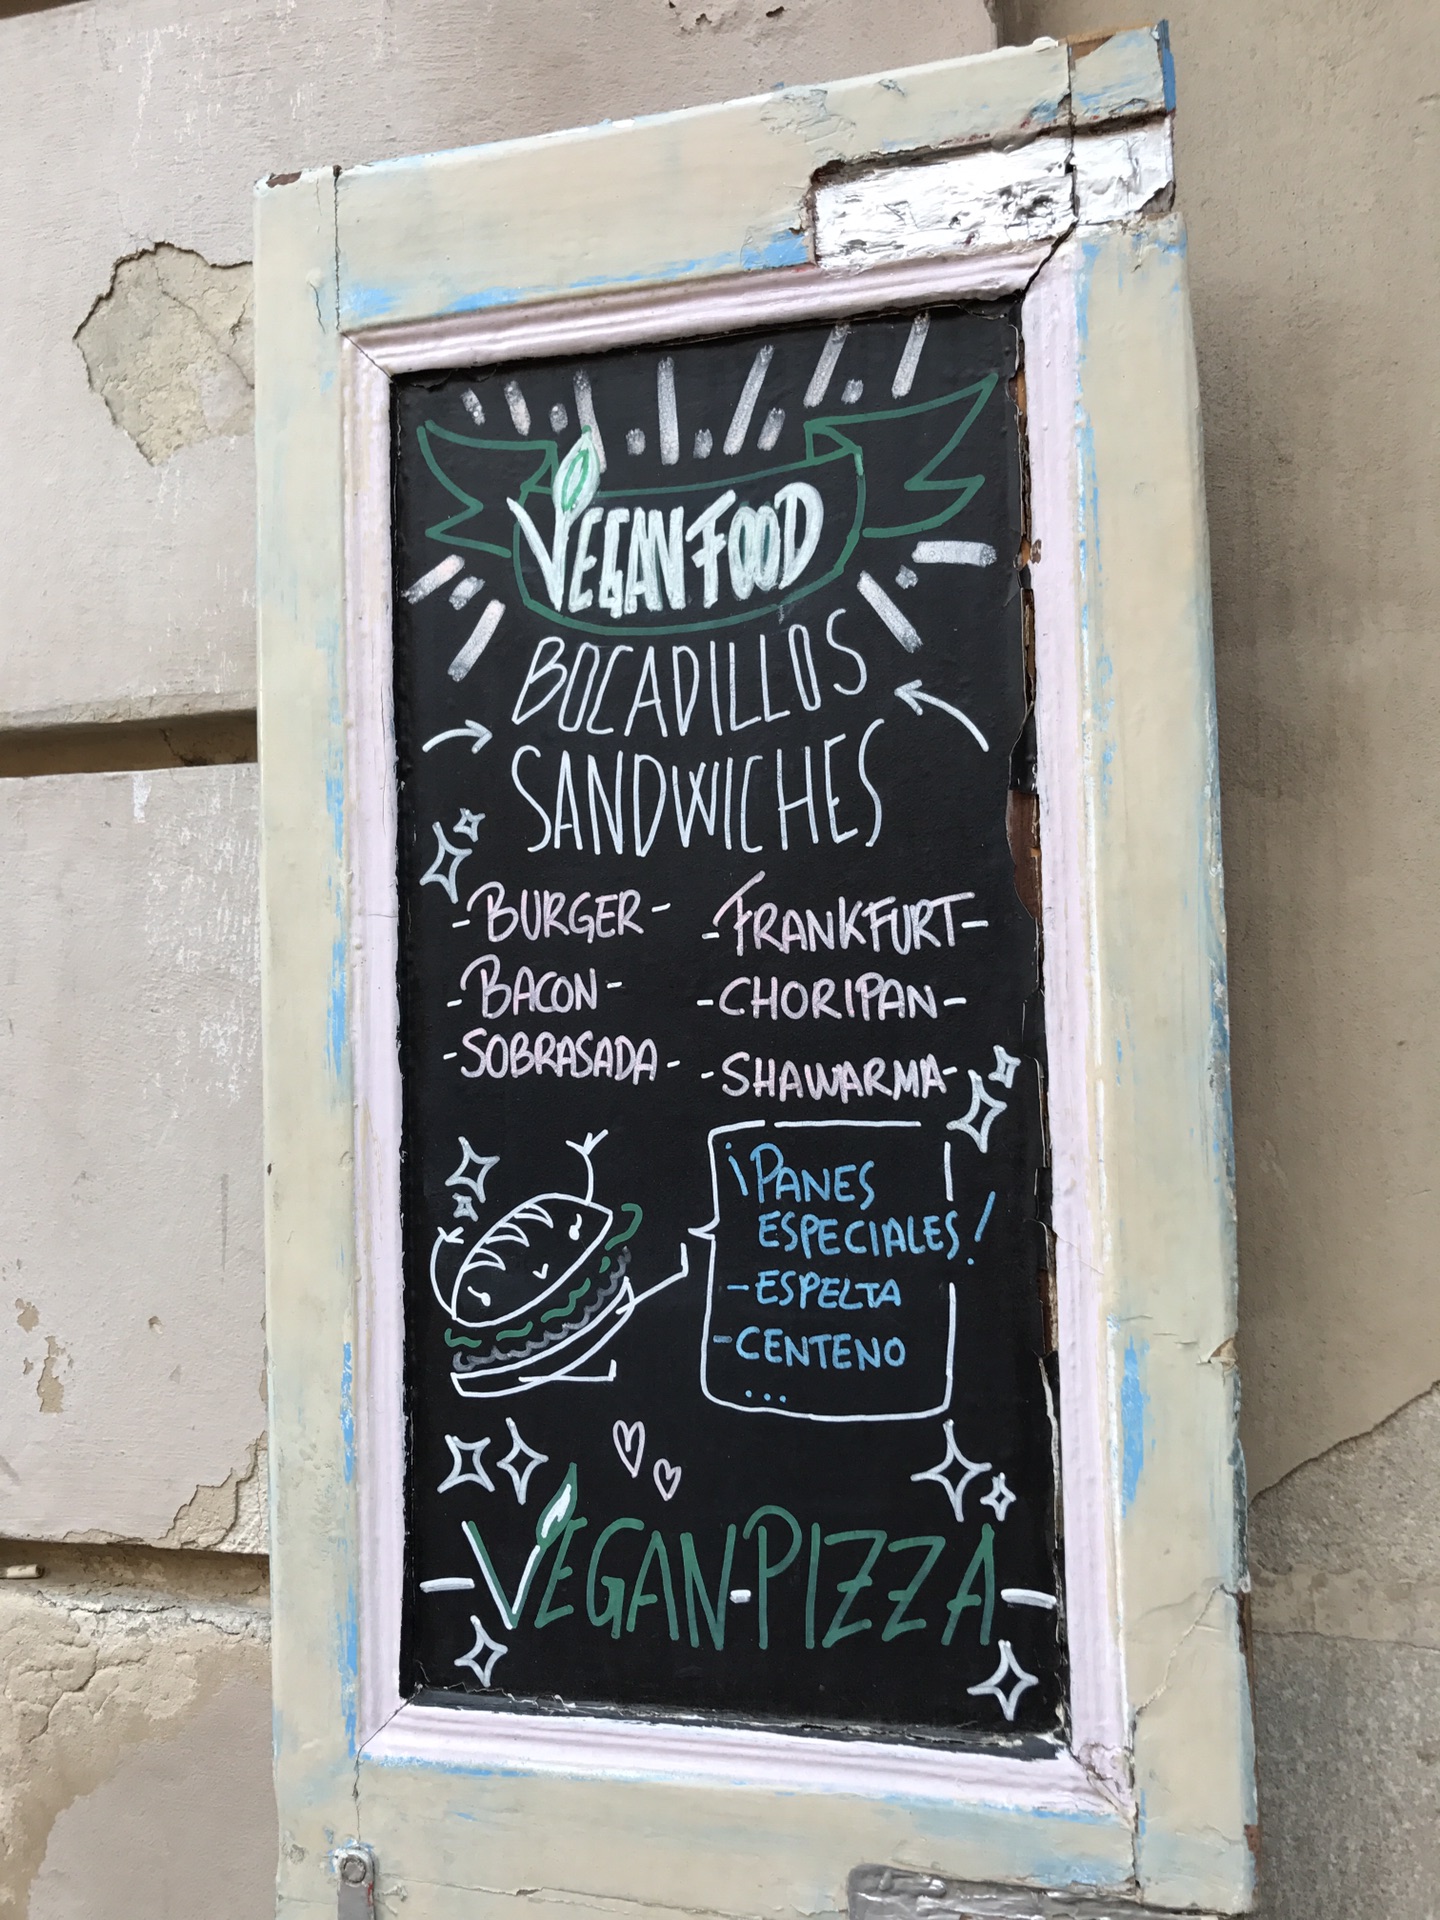 VEGAN FOOD
BOCADILLOS
SANDWICHES
-BURGER-
-BACON-
-SOBRASADA-
-FRANKFURT-
-CHORIPAN-
-SHAWARMA-
¡PANES
ESPECIALES!
-ESPELTA
-CENTENO
...
-VEGAN-PIZZA-